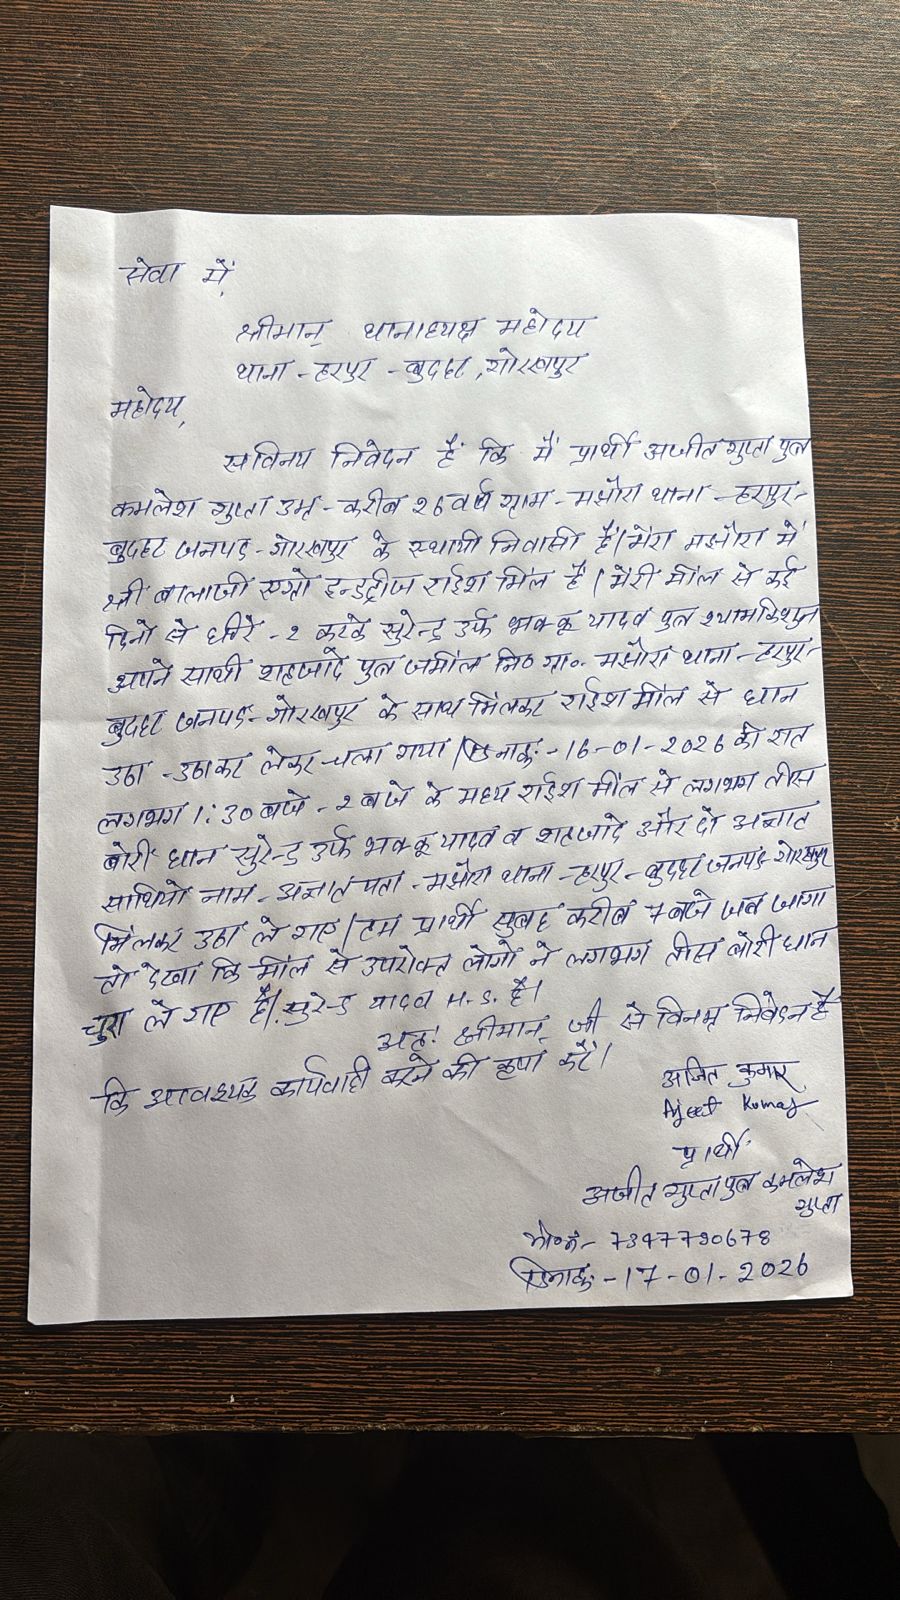 सेवा में,
श्रीमान् थानाध्यक्ष महोदय
थाना - हरपुर - बुदहट, गोरखपुर
महोदय,
सविनय निवेदन है कि मैं प्रार्थी अजीत गुप्ता पुत्र
कमलेश गुप्ता उम्र - करीब 26 वर्ष ग्राम - मझौरा थाना - हरपुर-
बुदहट जनपद - गोरखपुर के स्थायी निवासी हैं। मेरा मझौरा में
श्री बालाजी एग्रो इन्डट्रीज राईश मिल है। मेरी मील से कई
दिनो से धीरे - २ करके सुरेन्द्र उर्फ भक्कू यादव पुत्र श्यामकिशुन
अपने साथी शहजादे पुत्र जमील नि० ग्रा०. मझौरा थाना - हरपुर-
बुदहट जनपद - गोरखपुर के साथ मिलकर राईश मील से धान
उठा - उठाकर लेकर चला गया। दिनांक: - 16-01-2026 की रात
लगभग 1:30 बजे - 2 बजे के मध्य राईश मील से लगभग तीस
बोरी धान सुरेन्द्र उर्फ भक्कू यादव व शहजादे और दो अज्ञात
साथियो नाम - अज्ञात पता - मझौरा थाना - हरपुर - बुदहट जनपद - गोरखपुर
मिलकर उठा ले गए। हम प्रार्थी सुबह करीब 7 बजे जब जागा
तो देखा कि मील से उपरोक्त लोगों ने लगभग तीस बोरी धान
चुरा ले गए हैं। सुरेन्द्र यादव H.S. है।
अतः श्रीमान् जी से विनम्र निवेदन है
कि आवश्यक कार्यवाही करने की कृपा करें।
अजित कुमार
Ajeet Kumar
प्रार्थी
अजीत गुप्ता पुत्र कमलेश
गुप्ता
मो०नं - 7397790678
दिनांक: - 17-01-2026